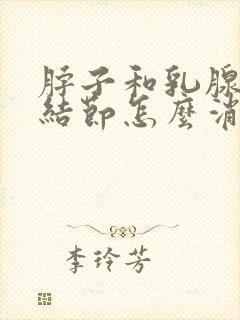 脖子和乳腺
結節怎麼消
李玲芳